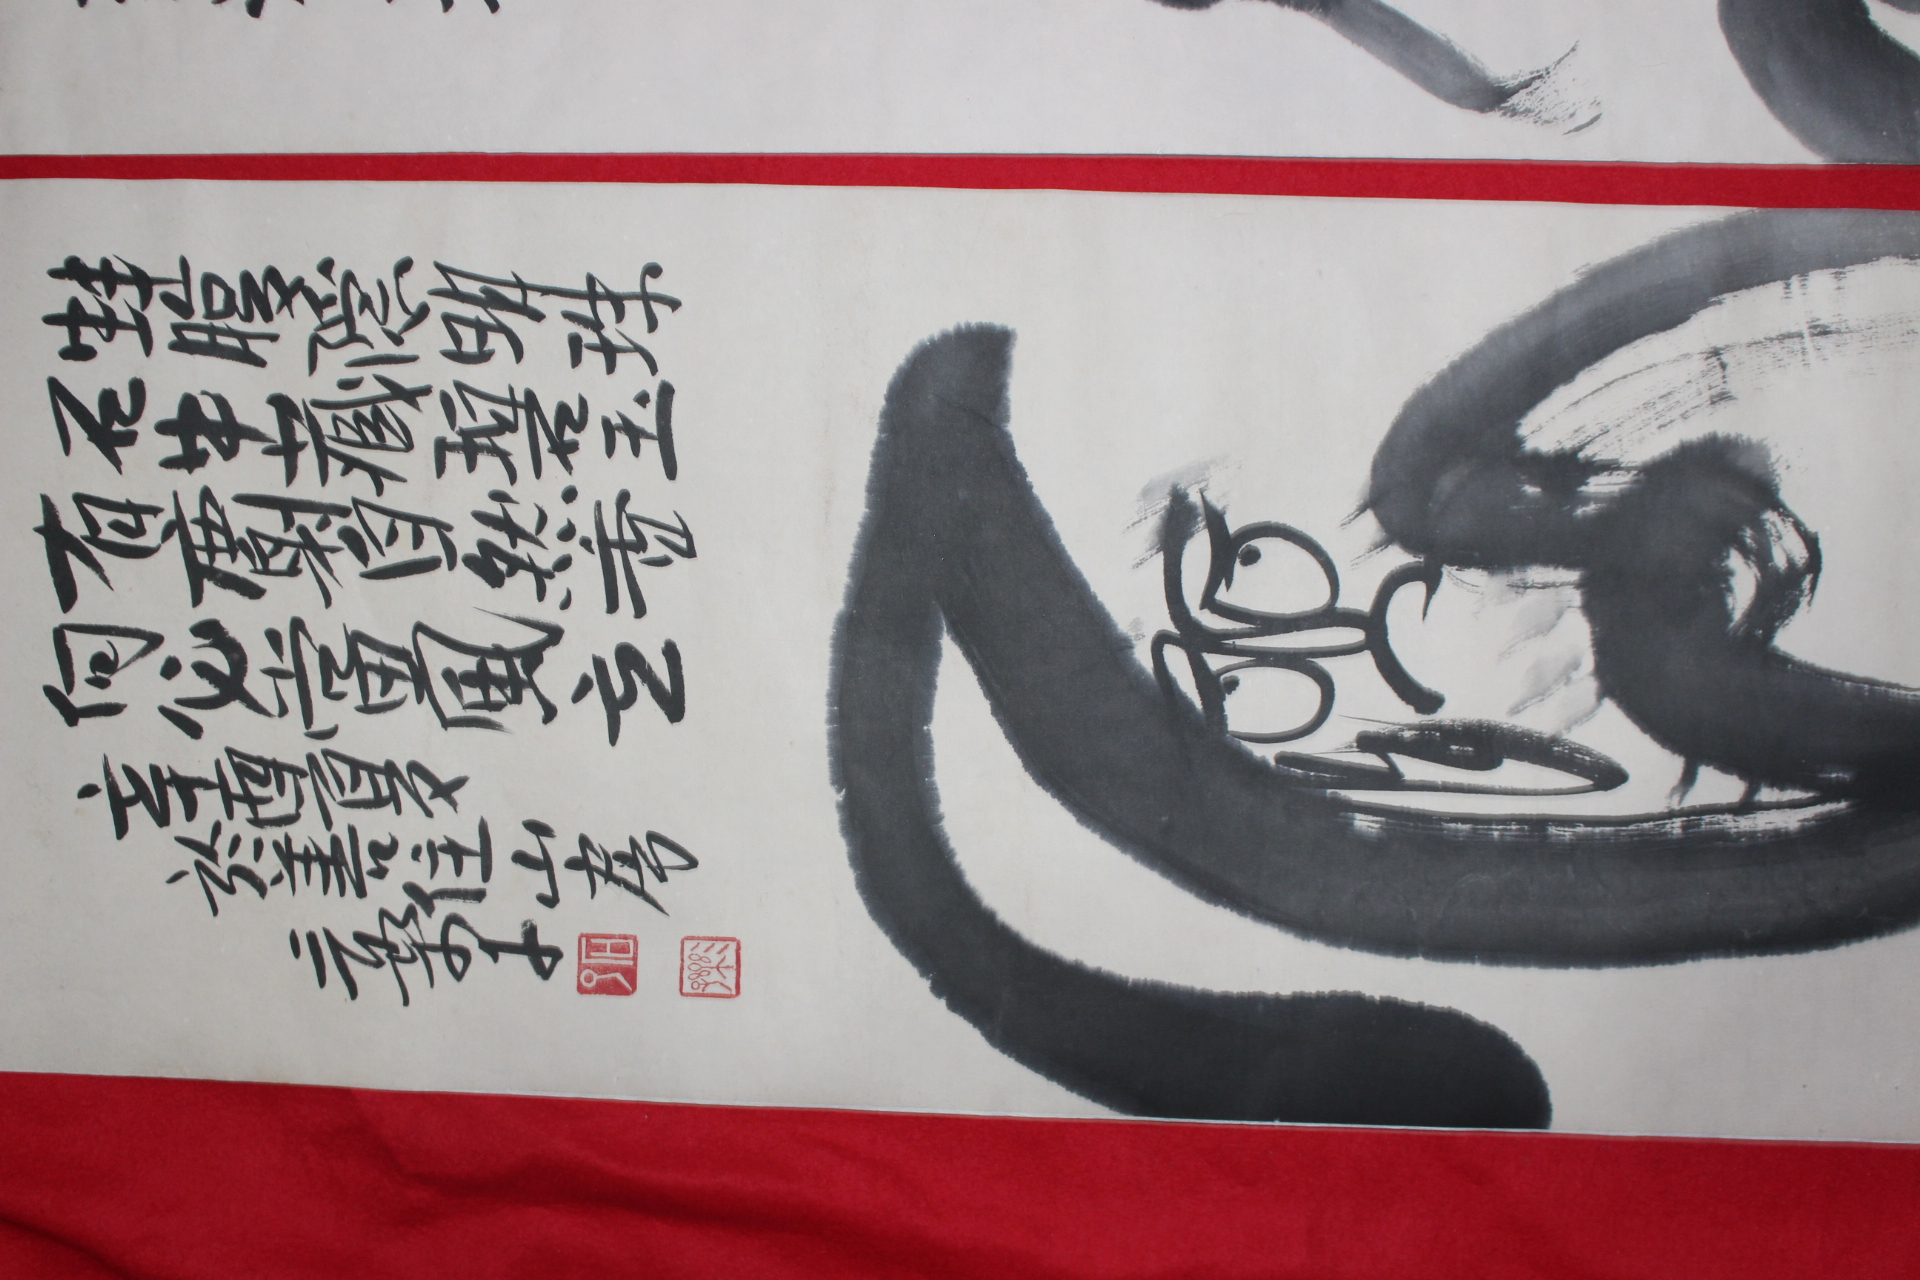 蚌腹隱明珠
石中藏碧玉
有麝自然香
何必當風立
辛酉夏
於善住山房